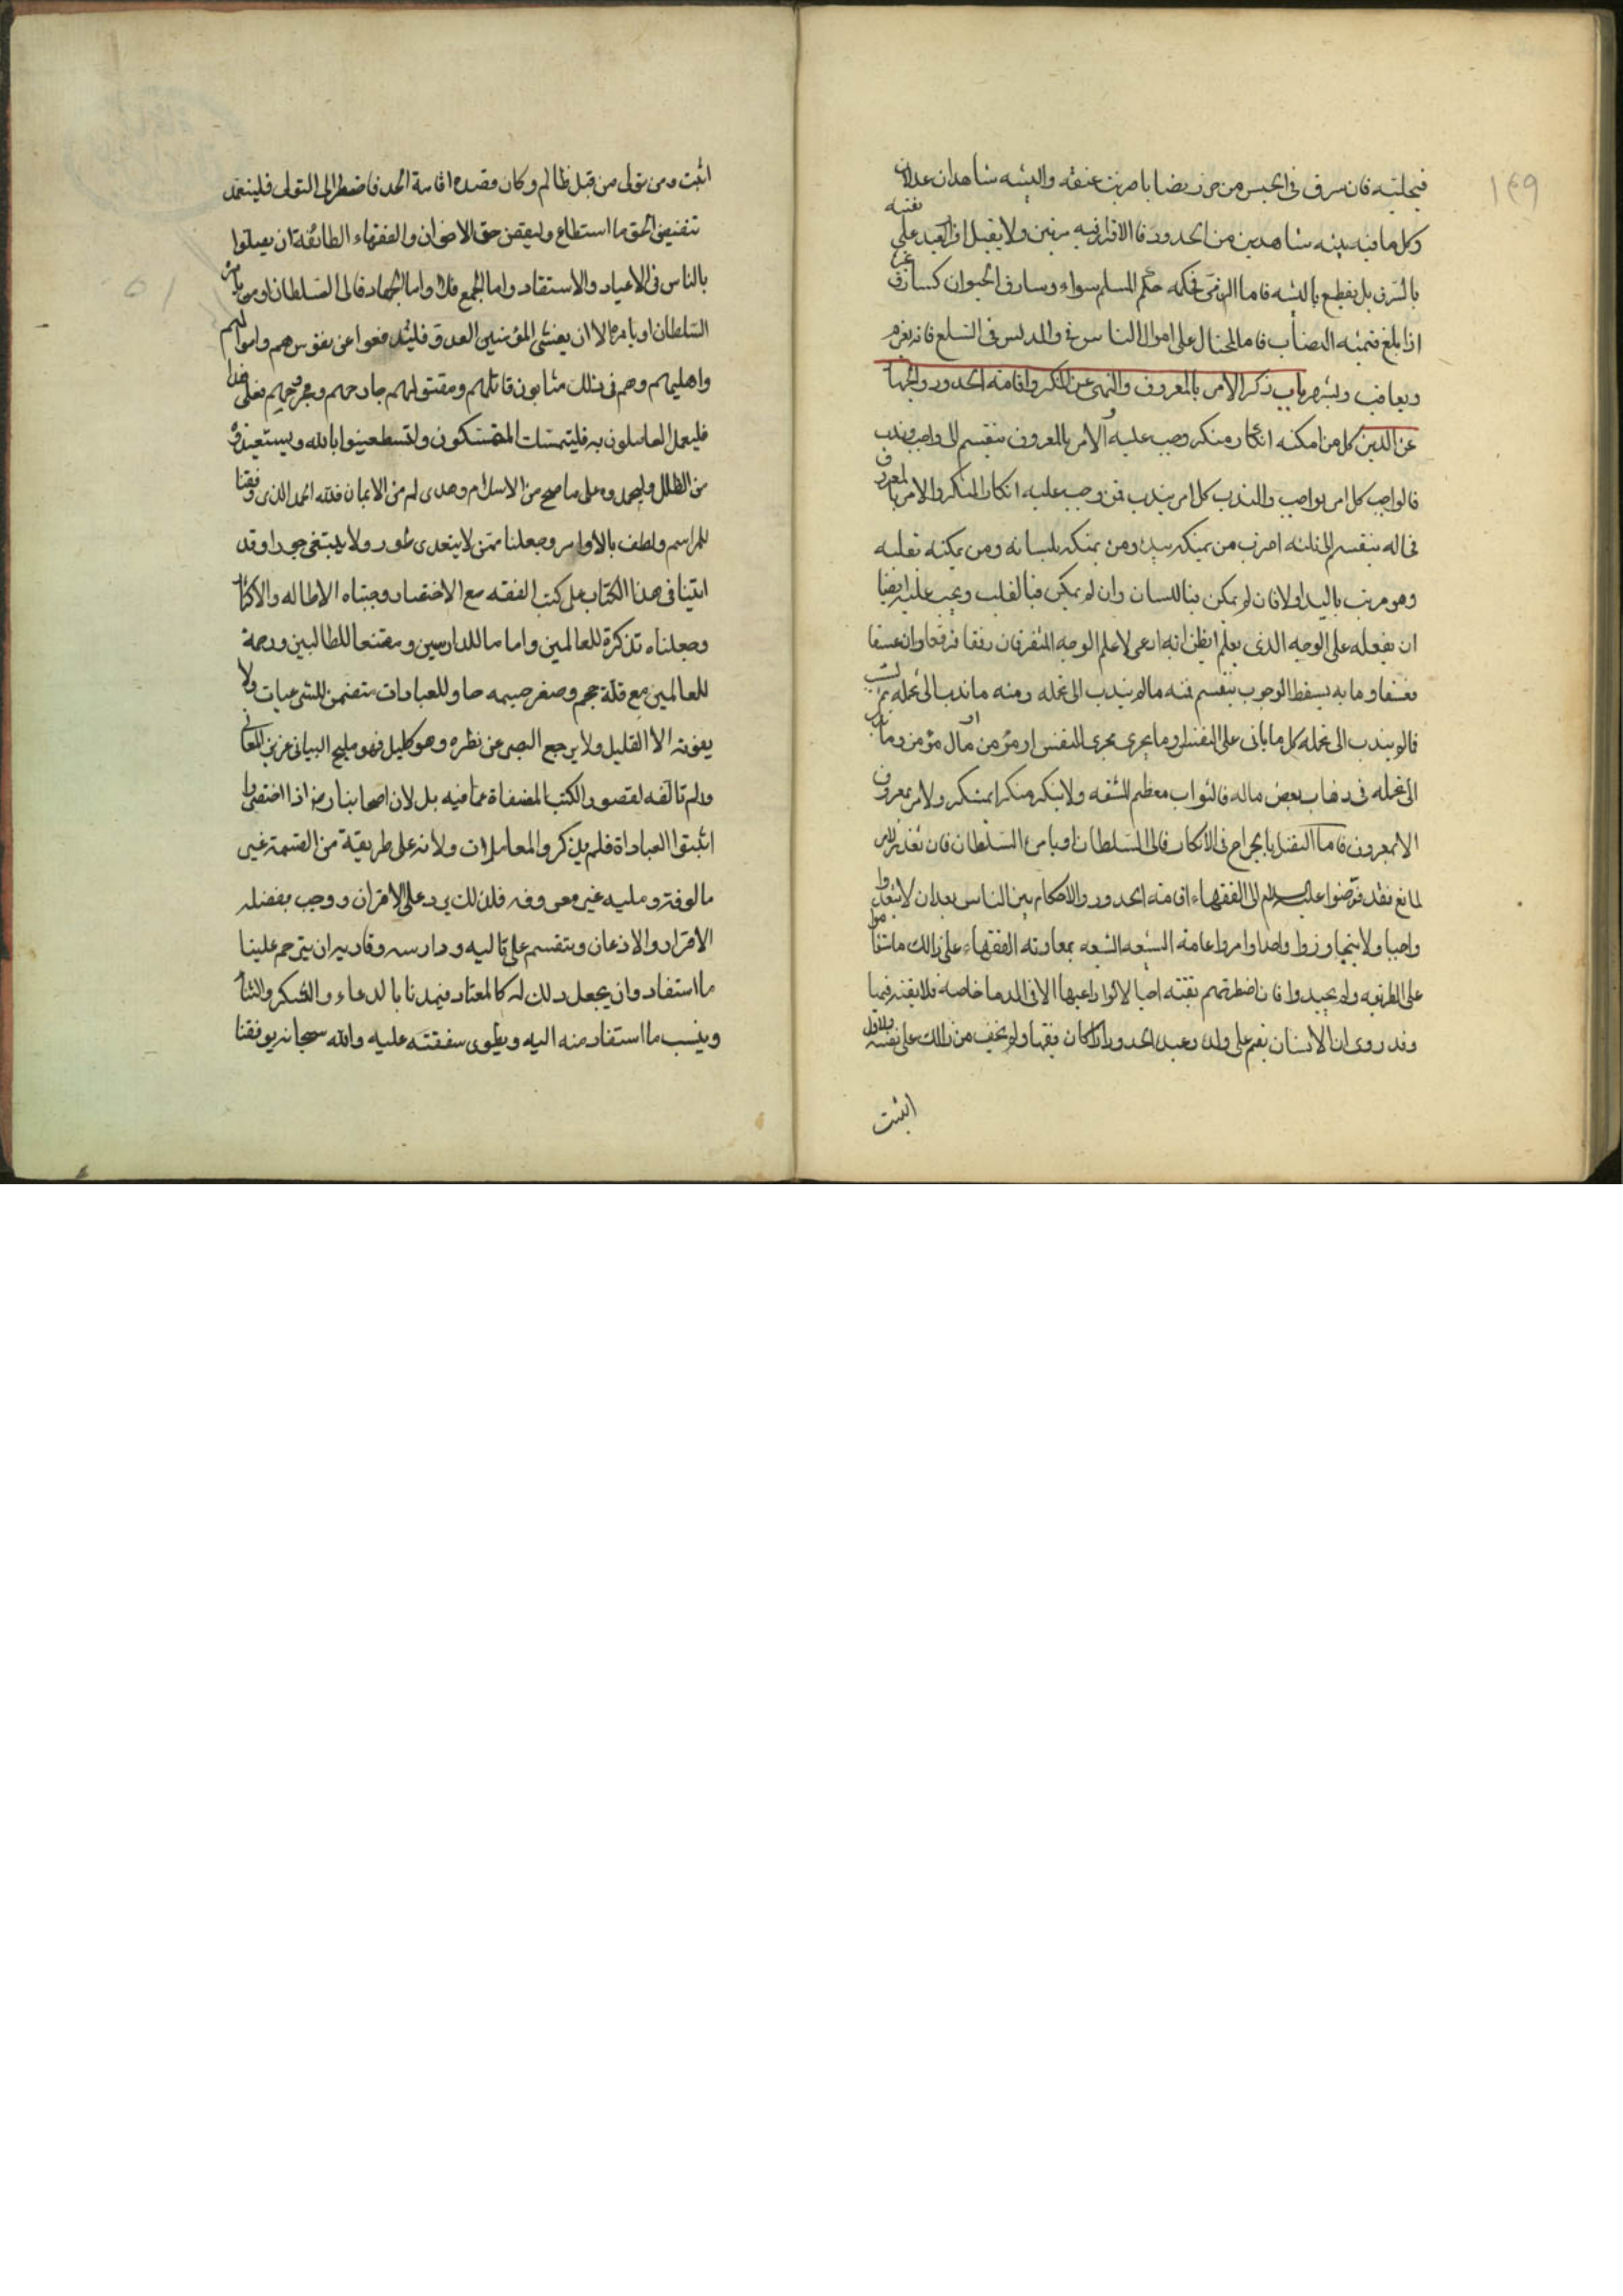 169
فيجلتيه فان سرق في الحبس من حرز ايضا باضربت عنقه والبينه شاهدان عدلان
وكل ما فيه بينه شاهدين من الحدود فالاقرار فيه مرتين ولا يقبل اقرار العبد على نفسه
بالسرق بل يقطع بالبينه فاما الذمي فحكمه حكم المسلم سواء وسارق الحيوان كسارق غيره
اذا بلغ قيمته النصاب فاما المحتال على اموال الناس والمدلس في السلع فانه يغرم
ويعاقب ويشهر باب ذكر الامر بالمعروف والنهي عن المنكر واقامة الحدود والجهاد
عن الدين كل من امكنه انكار منكر وجب عليه والامر بالمعروف ينقسم الى واجب وندب
فالواجب كل امر بواجب والندب كل امر بندب فمن وجب عليه انكار المنكر والامر بالمعروف
فحاله ينقسم الى ثلثه اضرب من يمكنه بيده ومن يمكنه بلسانه ومن يمكنه بقلبه
وهو مرتب باليد اولا فان لم يمكن فبا للسان وان لم يمكن فبالقلب ويجب عليه ايضا
ان يفعله على الوجه الذي يعلم ايظن انه ادعى لا على الوجه المنفر فان رفقا فرفقا وان عسفا
فعسفا وما به يسقط الوجوب ينقسم فمنه ما لم يندب الى تحمله ومنه ما ندب الى تحمله
فالم يندب الى تحمله كل ما ياتى على النفس او ما يجرى مجرى النفس او مؤمن او مال مؤمن وما ندب
الى تحمله في ذهاب بعض ماله فالثواب معظم للمشقه ولا ينكر منكرا بمنكر ولا امر بمعروف
الا بمعروف فاما القتل بالجراح في الانكار فالى السلطان او يامره السلطان فان تعذر الامر
لمانع فقد فوضوا عليهم السلام الى الفقهاء اقامة الحدود والاحكام بين الناس بعد ان لا يتعدوا
واجبا ولا يتجاوزوا واحدا وامروا عامة الشيعه بمعاونة الفقهاء على ذالك ما استقاموا
على الطريقه ولم يحيدوا فان اضطرتهم تقيه اجابوا الا في الدما خاصه فلا تقيه فيها
وقد روى ان الانسان يقيم على ولده وعبده الحدود اذا كان فقيها ولم يخف من ذالك على نفسه
اثبت
اثبت ومن تولى من قبل ظالم وكان قصده اقامة الحد فاضطر الى التولى فليتعمد
تنفيذ الحق ما استطاع وليقض حق الاخوان والفقهاء الطائفة ان يصلوا
بالناس في الاعياد والاستسقاء واما الجمع فلا واما الجهاد فالى السلطان او من يامره
السلطان او يامره الا ان يغشى المؤمنين العدو فليدفعوا عن نفوسهم واموالهم
واهليهم وهم في ذلك مثابون قاتلهم ومقتولهم جارحهم ومجروحهم فعلى هذا
فليعمل العاملون به فليتمسك المتمسكون وليستعينوا بالله ويستعيذوه
من الظلل وليحمدوه على ما صح من الاسلام وهدى لهم من الايمان فلله الحمد الذي وفقنا
للمراسم ولطف بالاوامر وجعلنا ممن لا يتعدى طور ولا يبتغي جورا وقد
اتينا في هذا الكتاب على كتب الفقه مع الاختصار وجنبناه الاطاله والاكثار
وجعلناه تذكرة للعالمين واماما للدارسين ومقنعا للطالبين ورحمة
للعالمين مع قلة حجم وصغر جسمه حاو للعبادات متضمن للشرعيات ولا
يفوته الا القليل ولا يرجع البصر عن نظره وهو كليل فهو مليح البيانى عزيز المعانى
ولم نالفه لقصور الكتب المصنفاة عما فيه بل لان اصحابنا رض اذا اختصروا
اثبتوا العباداة فلم يذكروا المعاملات ولانه على طريقة من القسمة غير
مالوفة وملية غير معروفه فلذلك يرد على الاقران ووجب بفضله
الاقرار والاذعان وينقسم على تاليه ودارسه وقاريه ان يترحم علينا
ما استفاد وان يجعل ذلك له كالمعتاد فيمدنا بالدعاء والشكر والثناء
وينسب ما استفاد منه اليه ويطوى سفقته عليه والله سبحانه يوفقنا